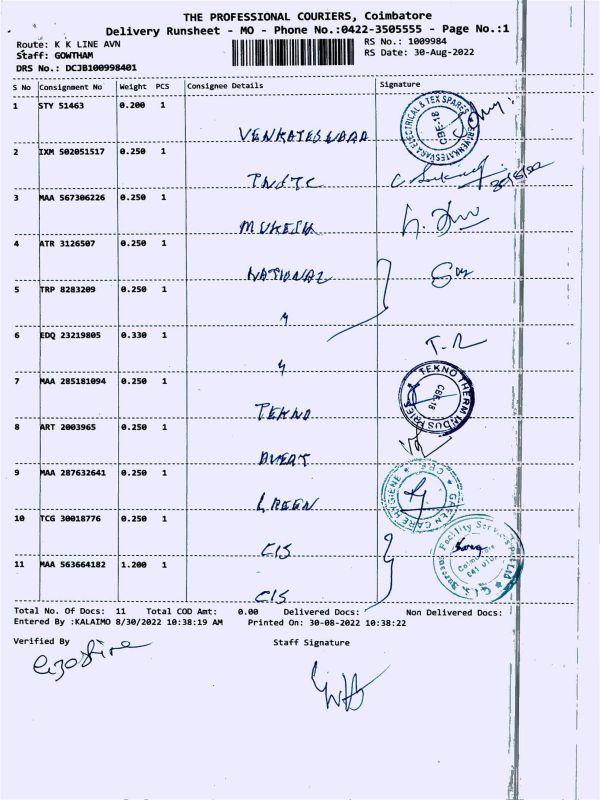 THE PROFESSIONAL COURIERS, Coimbatore
Delivery Runsheet - MO - Phone No.:0422-3505555 - Page No.:1
Route: K K LINE AVN
RS No.: 1009984
Staff: GOWTHAM
RS Date: 30-Aug-2022
DRS No.: DCJB100998401
S No Consignment No Weight PCS Consignee Details Signature
1 STY 51463 0.200 1
VENKATESWARA
2 IXM 502051517 0.250 1
TNSTC
30/8/22
3 MAA 567306226 0.250 1
MUKESH
4 ATR 3126507 0.250 1
NATIONAL
5 TRP 8283209 0.250 1
"
6 EDQ 23219805 0.330 1
"
T. R
7 MAA 285181094 0.250 1
TEKNO
TEKNO THERM INDUSTRIES
CBE-18
8 ART 2003965 0.250 1
9 MAA 287632641 0.250 1
GREEN
GREEN CARE HYGIENE
CBE
10 TCG 30018776 0.250 1
CIS
Facility Services Pvt Ltd
Coimbatore
11 MAA 563664182 1.200 1
CIS
Total No. Of Docs: 11 Total COD Amt: 0.00 Delivered Docs: Non Delivered Docs:
Entered By :KALAIMO 8/30/2022 10:38:19 AM Printed On: 30-08-2022 10:38:22
Verified By Staff Signature